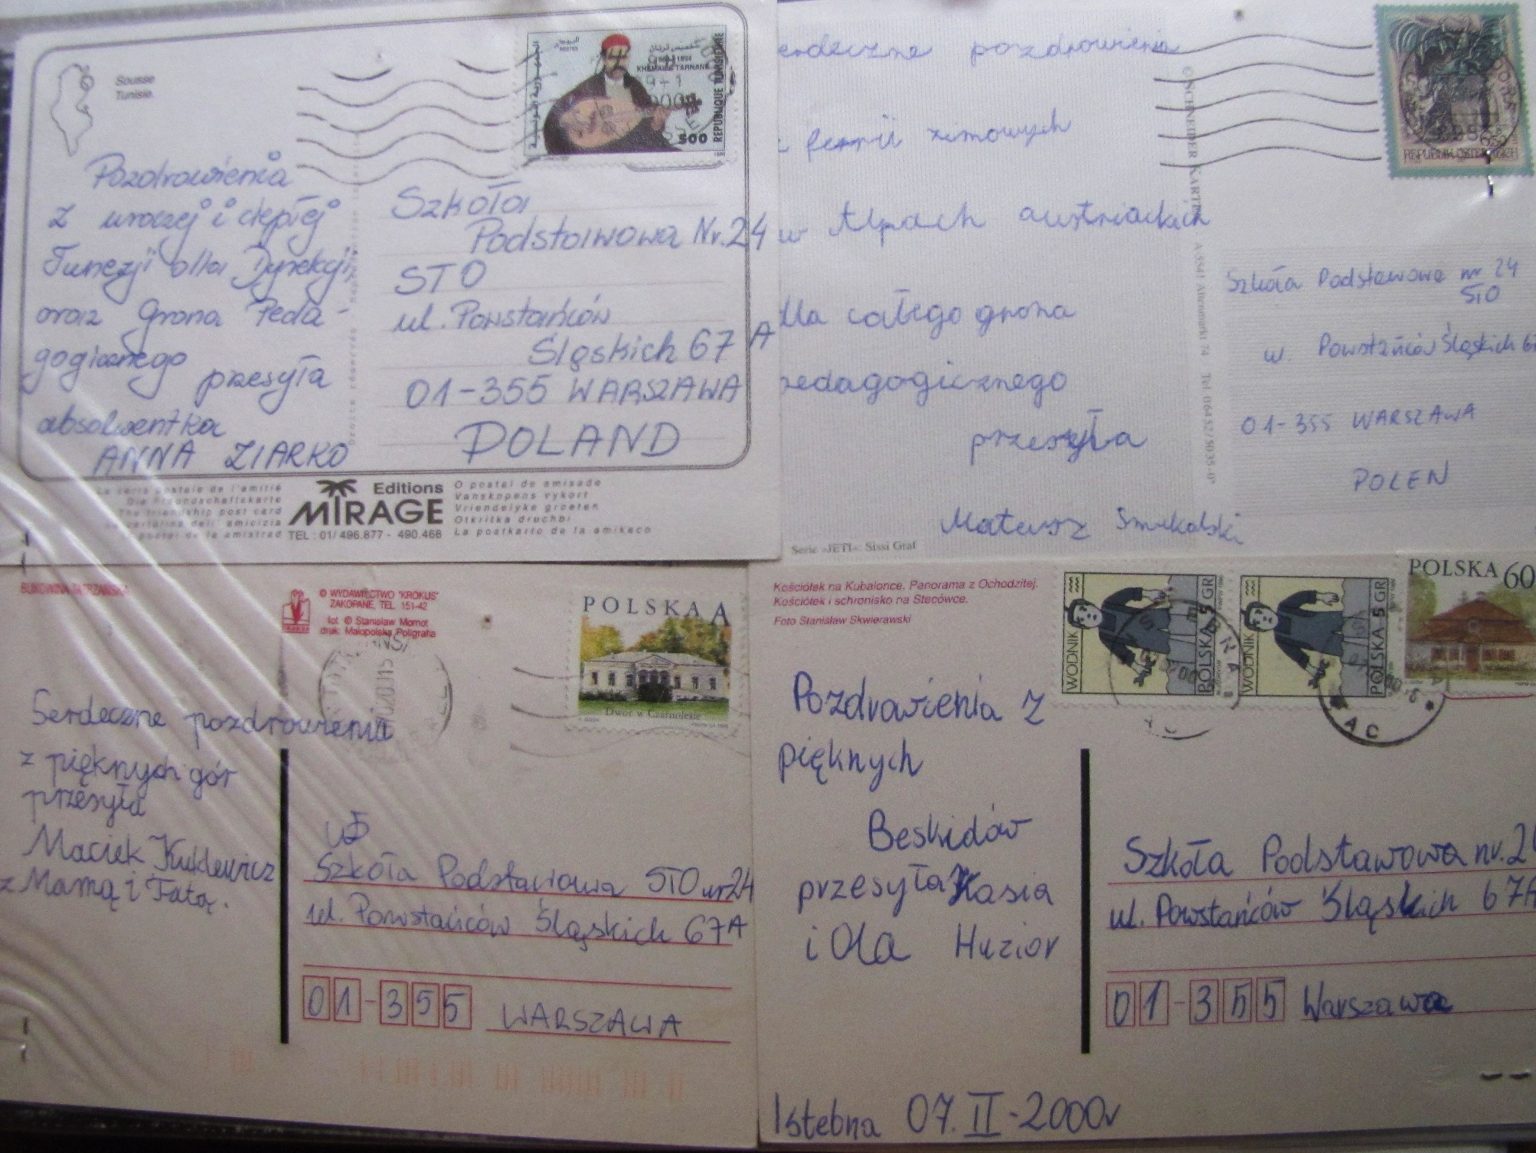 Sousse
Tunisie
1894-1964
KHEMAIS TARNANE
REPUBLIQUE TUNISIENNE
500
Pozdrowienia
z uroczej i ciepłej
Tunezji dla Dyrekcji
oraz Grona Peda-
gogicznego
przesyła
absolwentka
ANNA ZIARKO
Szkoła
Podstawowa Nr. 24
STO
ul. Powstańców
Śląskich 67 A
01-355 WARSZAWA
POLAND
La carte postale de l'amitié
Die Freundschaftskarte
The friendship post card
La cartolina dell' amicizia
La postal de la amistad
Editions
MIRAGE
TEL : 01/ 496.877 - 490.466
O postal de amisade
Vanskopens vykort
Vriendelyke groeten
Otkritka druchbi
La postkarto de la amikeco
erdeczne pozdrowienia
z ferii zimowych
w Alpach austriackich
dla całego grona
pedagogicznego
przesyła
Mateusz Smukalski
Serie »JETI«: Sissi Graf
© SCHNEIDER KARTEN A-5541 Altenmarkt 74
REPUBLIK ÖSTERREICH
Szkoła Podstawowa nr 24
STO
ul. Powstańców Śląskich 67
01-355 WARSZAWA
POLEN
BUKOWINA TATRZAŃSKA
© WYDAWNICTWO "KROKUS"
ZAKOPANE, TEL. 151-42
fot © Stanisław Momot
druk: Małopolska Poligrafia
POLSKA A
Dwór w Czarnolesie
Serdeczne pozdrowienia
z pięknych gór
przesyła
Maciek Kuklewicz
z Mamą i Tatą.
Szkoła Podstawowa STO nr 24
ul. Powstańców Śląskich 67A
01-355 WARSZAWA
Kościółek na Kubalonce. Panorama z Ochodzitej.
Kościółek i schronisko na Stecówce.
Foto Stanisław Skwierawski
WODNIK
POLSKA 5 GR
WODNIK
POLSKA 5 GR
POLSKA 60
Pozdrowienia z
pięknych
Beskidów
przesyła Kasia
i Ola Huzior
Szkoła Podstawowa nr. 24
ul. Powstańców Śląskich 67A
01-355 Warszawa
Istebna 07. II - 2000r